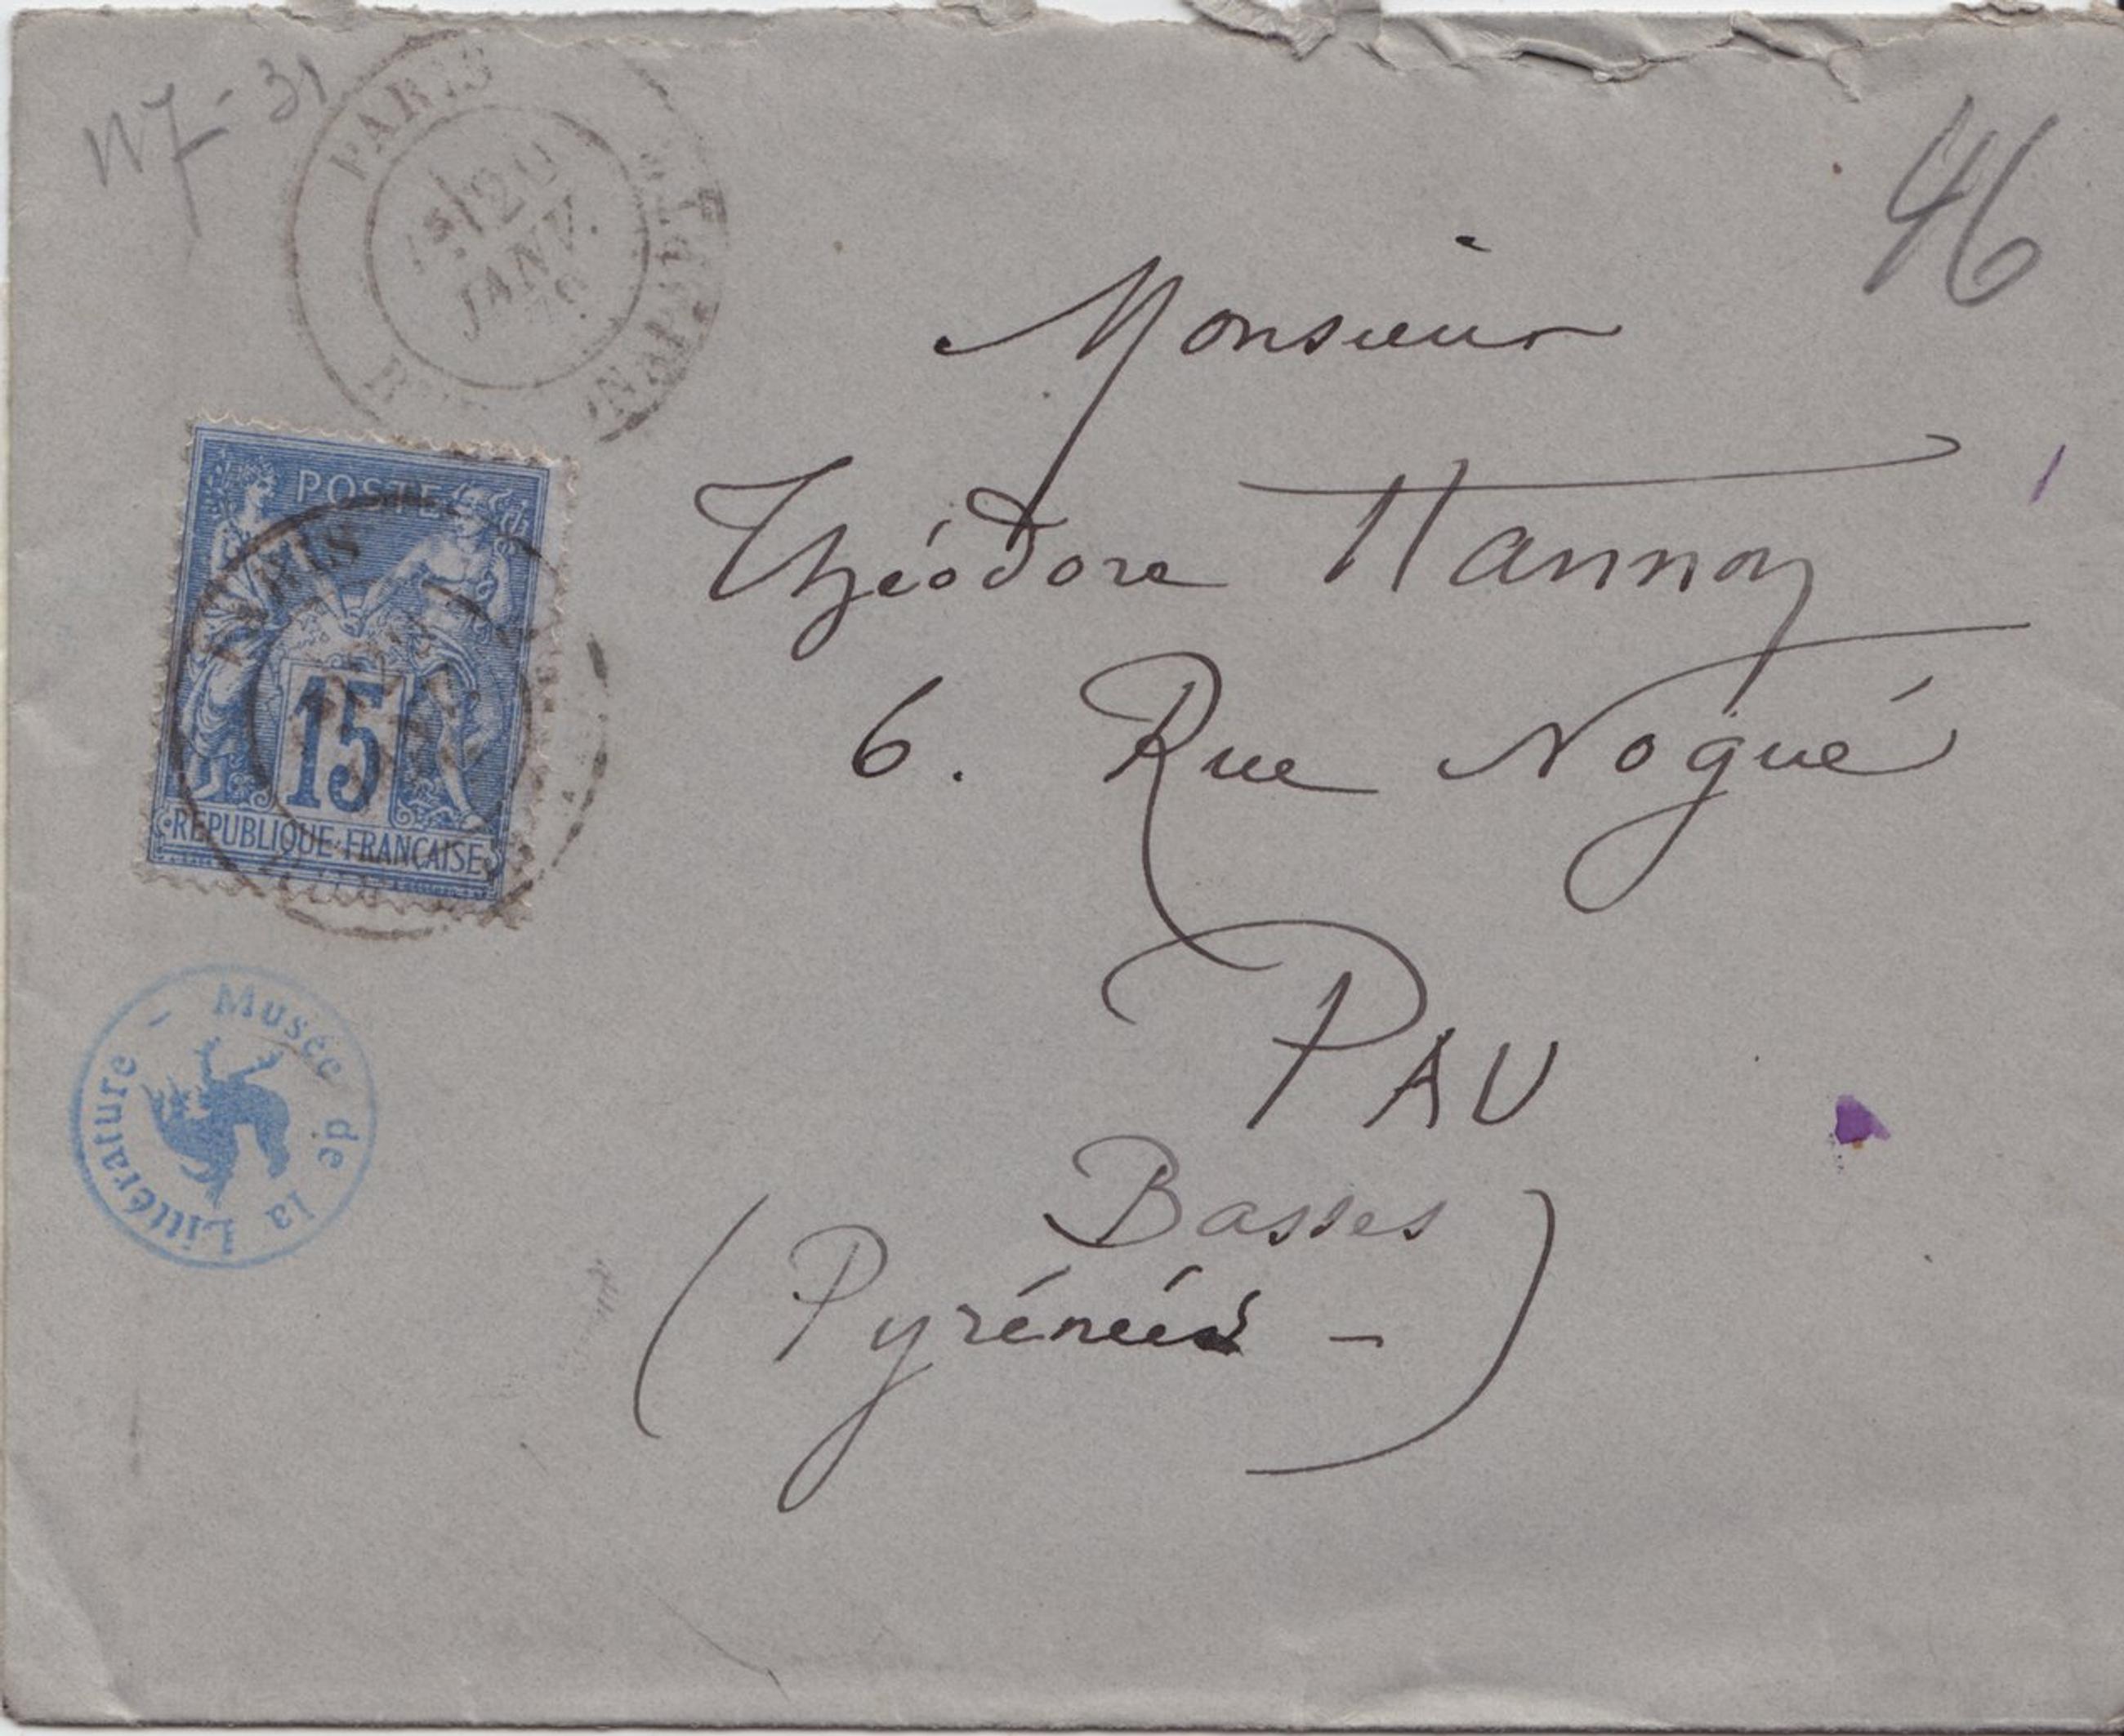 N7-31
PARIS
20
JANV.
46
Monsieur
Théodore Hannon
6. Rue Nogué
PAU
Basses
(Pyrénées -)
POSTE
PARIS
15
REPUBLIQUE FRANCAISE
Musée de la Littérature -